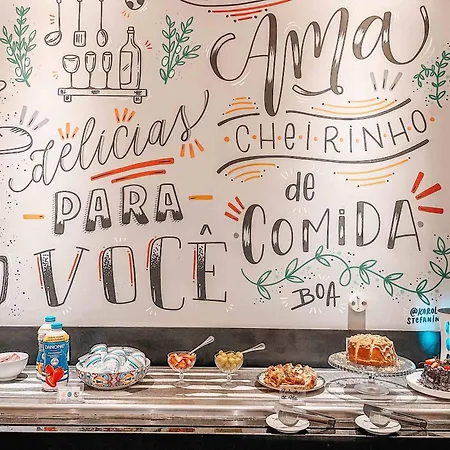 delícias
PARA
VOCÊ
Ama
CHEIRINHO
de
COMIDA
BOA
@KAROL
STEFANIN
DANONE